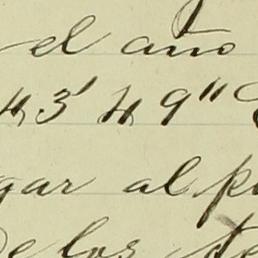 el año
43' 49"
gar al p
de los te